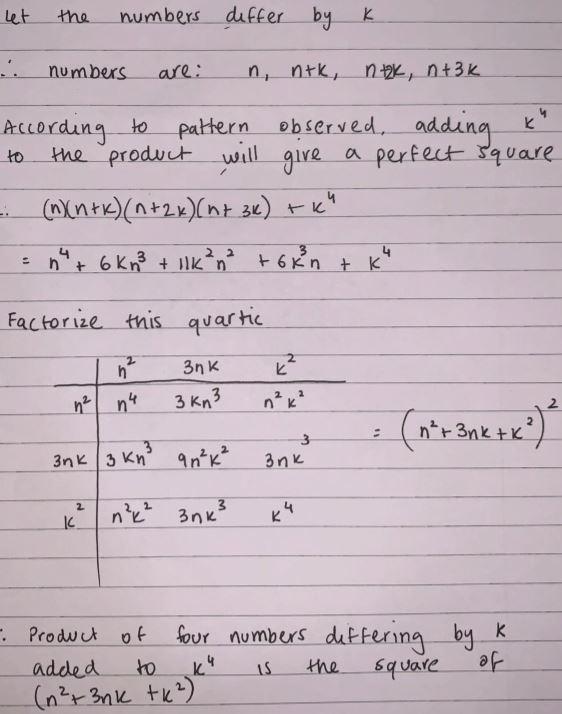 Let the numbers differ by k
∴ numbers are: n, n+k, n+2k, n+3k
According to pattern observed, adding k⁴
to the product will give a perfect square
∴ (n)(n+k)(n+2k)(n+3k) + k⁴
= n⁴ + 6kn³ + 11k²n² + 6k³n + k⁴
Factorize this quartic
n² 3nk k²
n² n⁴ 3kn³ n²k²
3nk 3kn³ 9n²k² 3nk³
= (n²+3nk+k²)²
k² n²k² 3nk³ k⁴
∴ Product of four numbers differing by k
added to k⁴ is the square of
(n²+3nk+k²)